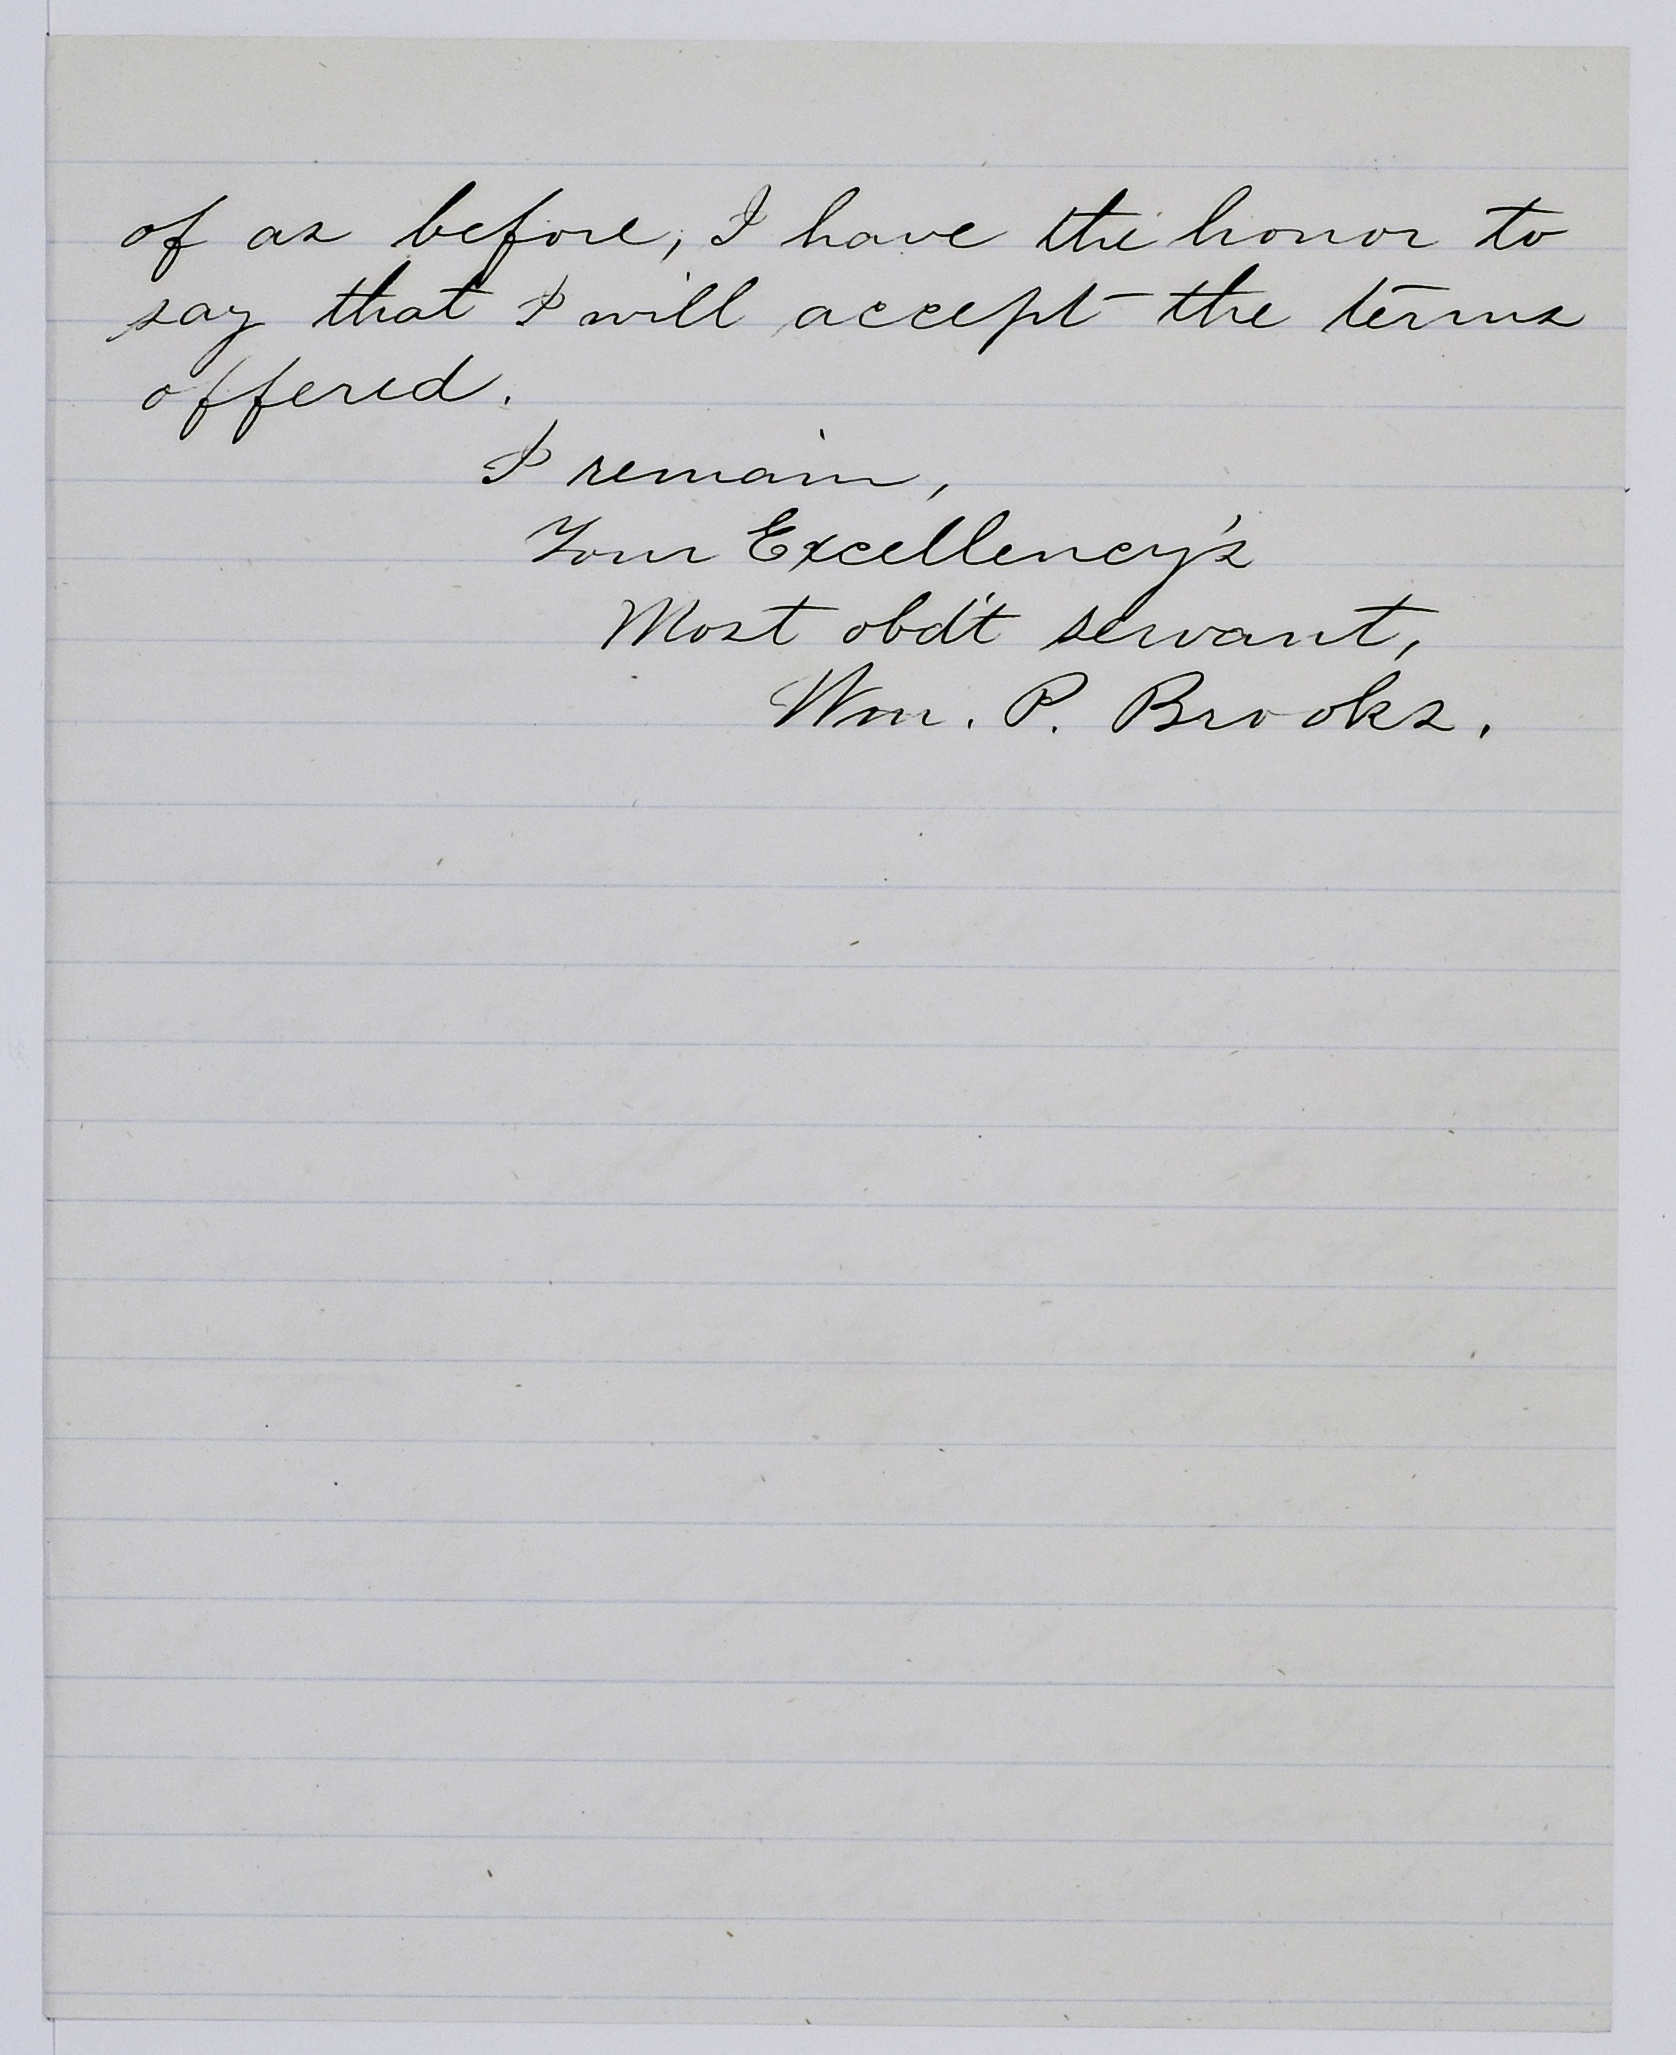 of as before, I have the honor to
say that I will accept the terms
offered.
I remain,
Your Excellency's
Most obd't servant,
Wm. P. Brooks.